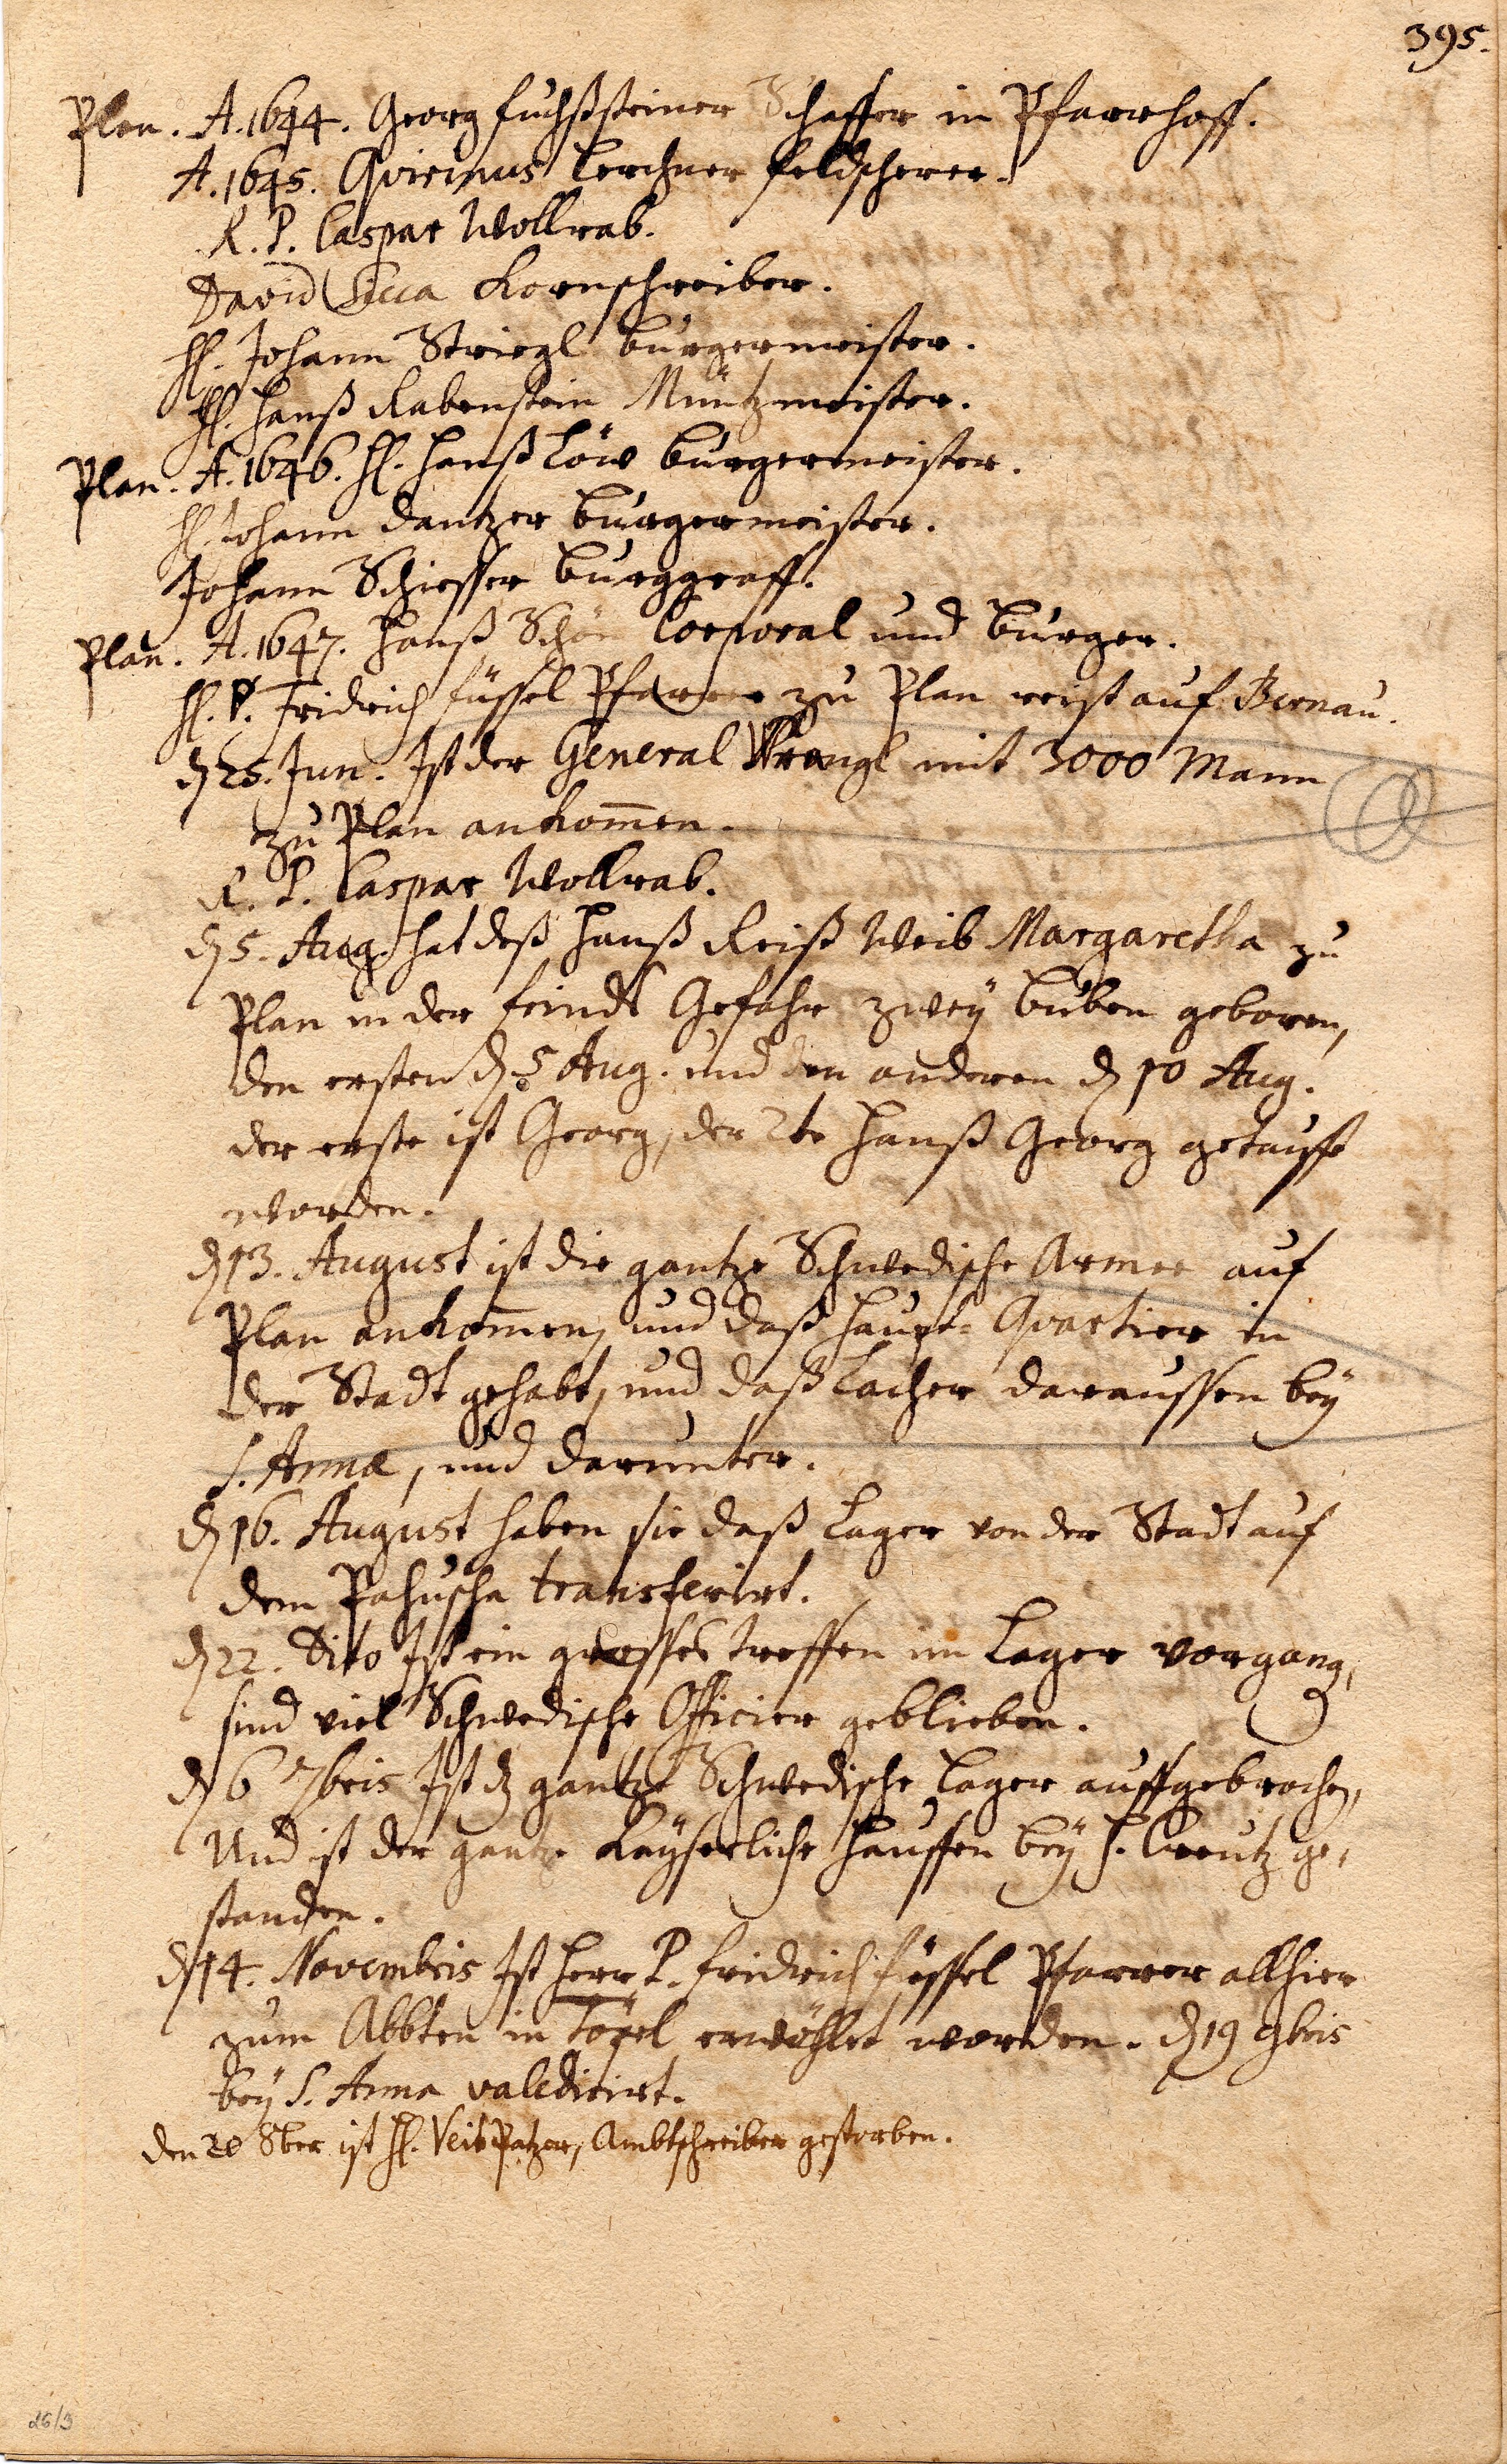 395.
Plan. A. 1644. Georg Fuchßsteiner Schaffer in Pfarrhoff.
A. 1645. Quirinus Lerchner Feldscherer.
R. P. Caspar Wollrab.
David Sicca Kornschreiber.
H. Johann Striegl Burgermeister.
H. Hanß Rabenstein Müntzmeister.
Plan. A. 1646. H. Hanß Löw Burgermeister.
H. Johann Dantzer Burgermeister.
Johann Schiesser Burggraff.
Plan. A. 1647. Hanß Schön Corporal und Burger.
H. P. Fridrich Füssel Pfarrer zu Plan reist auf Bernau.
d 25. Jun. Ist der General Wrangl mit 3000 Mann
zu Plan ankom̄en.
R. P. Caspar Wollrab.
d 5. Aug. hat deß Hanß Reiß Weib Margaretha zu
Plan in der feindts Gefahr zwey Buben geboren,
den ersten d 5 Aug. und den anderen d 10 Aug.
der erste ist Georg, der 2te Hanß Georg getaufft
worden.
d 13. August ist die gantze Schwedische Armee auf
Plan ankom̄en, und daß Haupt-Quartier in
der Stadt gehabt, und daß Lacher daraussen bey
S. Anna, und darunter.
d 16. August haben sie daß Lager von der Stadt auf
dem Pahuscha transferirt.
d 22. Dito Ist ein grosses treffen im Lager vorgang,
sind viel Schwedische Officier geblieben.
d 6 7bris Ist dz gantze Schwedische Lager auffgebrochen,
Und ist der gantze Kayserliche Hauffen bey H. Creutz ge-
standen.
d 14. Novembris Ist Herr P. Fridrich Füssel Pfarrer allhier
zum Abbten in Töpel erwöhlet worden. d 19 9bris
bey S. Anna valedicirt.
den 20 8ber ist H. Veit Patzer, Ambtschreiber gestorben.
26/3